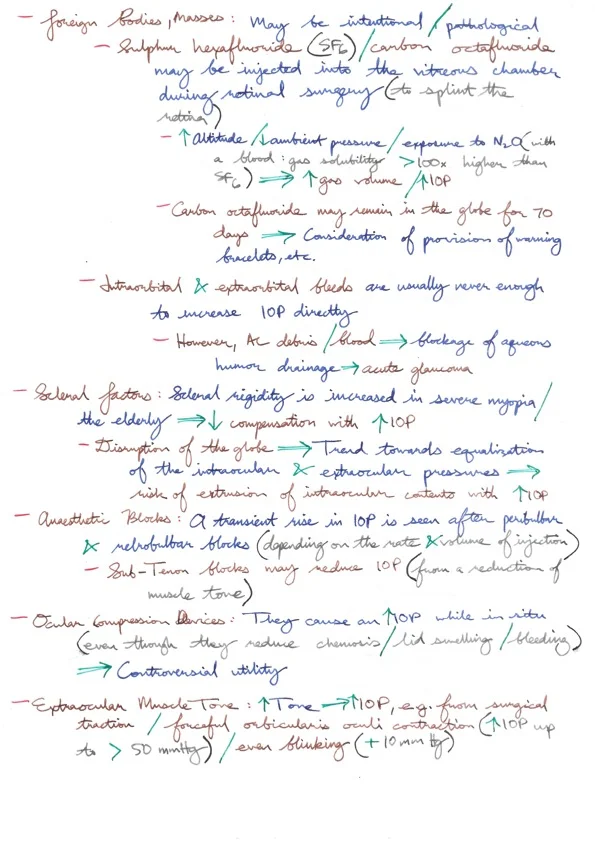 - Foreign Bodies, Masses: May be intentional / pathological
- Sulphur hexafluoride (SF6) / carbon octafluoride
may be injected into the vitreous chamber
during retinal surgery (to splint the
retina)
- ↑ Altitude / ↓ ambient pressure / exposure to N2O (with
a blood:gas solubility >100x higher than
SF6) ⇒ ↑ gas volume / ↑ IOP
- Carbon octafluoride may remain in the globe for 70
days ⇒ Consideration of provision of warning
bracelets, etc.
- Intraorbital & extraorbital bleeds are usually never enough
to increase IOP directly
- However, AC debris / blood ⇒ blockage of aqueous
humor drainage → acute glaucoma
- Scleral factors: Scleral rigidity is increased in severe myopia /
the elderly ⇒ ↓ compensation with ↑ IOP
- Disruption of the globe ⇒ Trend towards equalization
of the intraocular & extraocular pressures ⇒
risk of extrusion of intraocular contents with ↑ IOP
- Anaesthetic Blocks: A transient rise in IOP is seen after peribulbar
& retrobulbar blocks (depending on the rate & volume of injection)
- Sub-Tenon blocks may reduce IOP (from a reduction of
muscle tone)
- Ocular Compression Devices: They cause an ↑ IOP while in situ
(even though they reduce chemosis / lid swelling / bleeding)
⇒ Controversial utility
- Extraocular Muscle Tone: ↑ Tone → ↑ IOP, e.g. from surgical
traction / forceful orbicularis oculi contraction (↑ IOP up
to > 50 mmHg) / even blinking (+10 mm Hg)